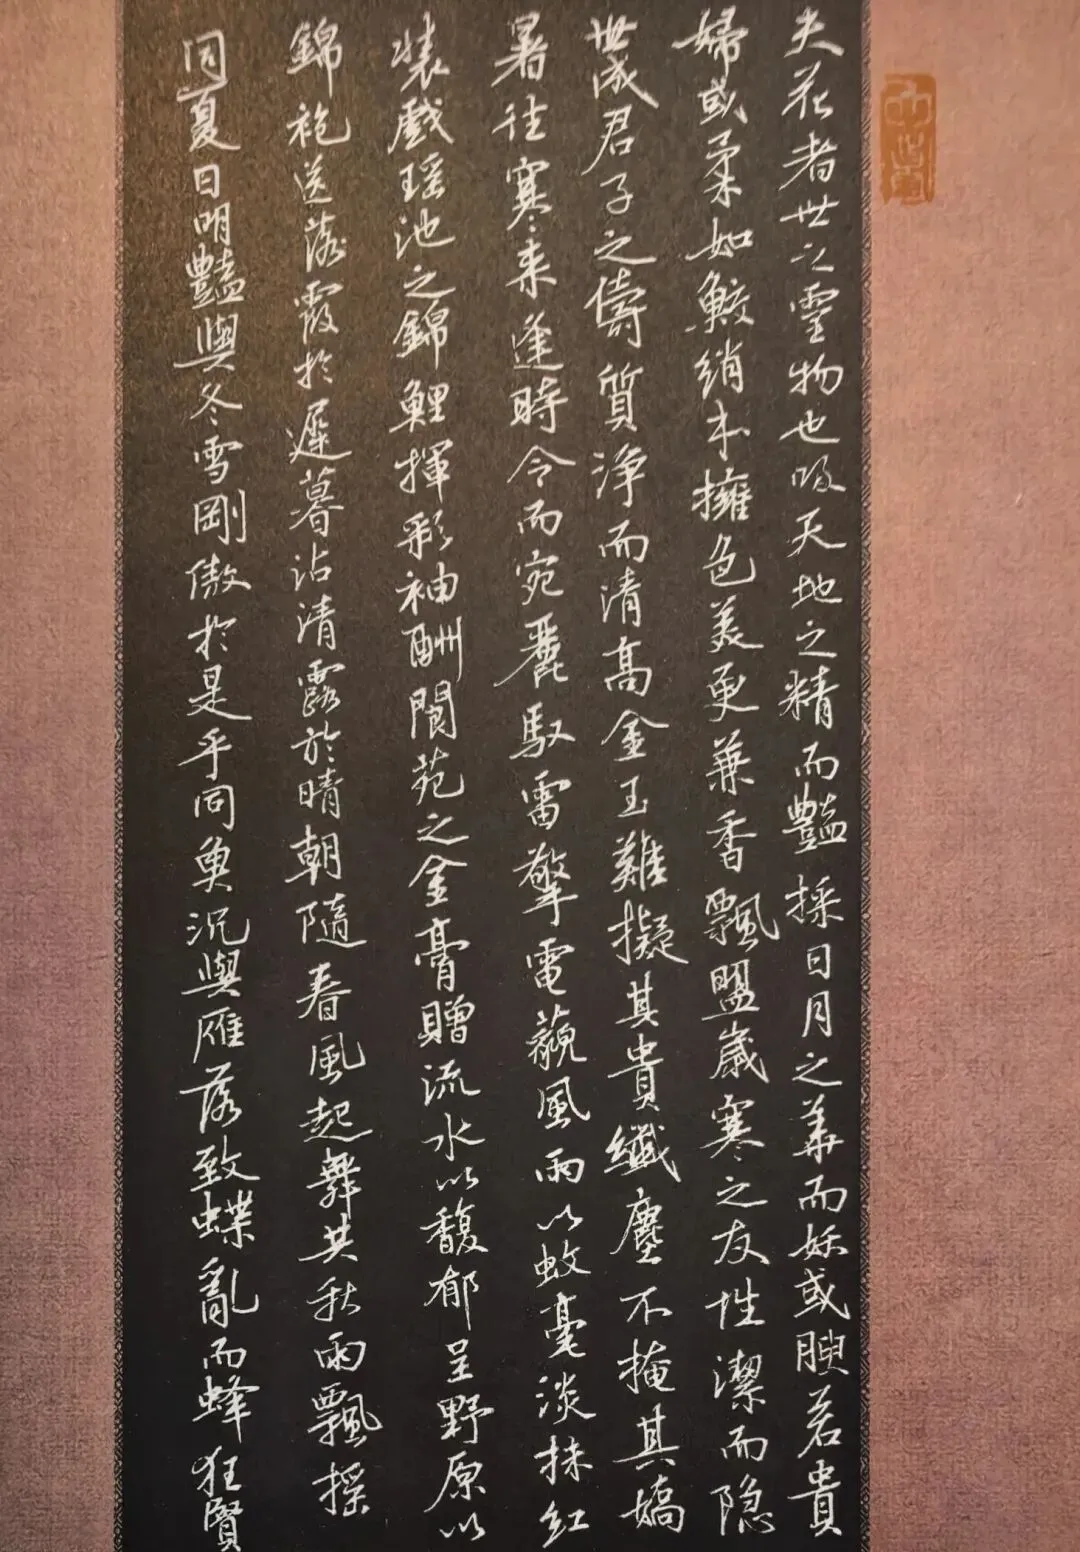 夫花者世之靈物也吸天地之精而豔採日月之華而妖或腴若貴
婦或柔如鮫綃本擁色美更兼香飄盟嵗寒之友性潔而隐
世成君子之儔質淨而清高金玉難擬其貴纖塵不掩其嬌
暑往寒来逢時令而宛麗馭雷擎電藐風雨以蚊毫淡抹紅
裝戲瑶池之錦鯉揮彩袖酬閬苑之金膏贈流水以馥郁呈野原以
錦袍送落霞於遲暮沾清露於晴朝隨春風起舞共秋雨飄摇
同夏日明豔與冬雪剛傲於是乎同魚沉與雁落致蝶亂而蜂狂賢